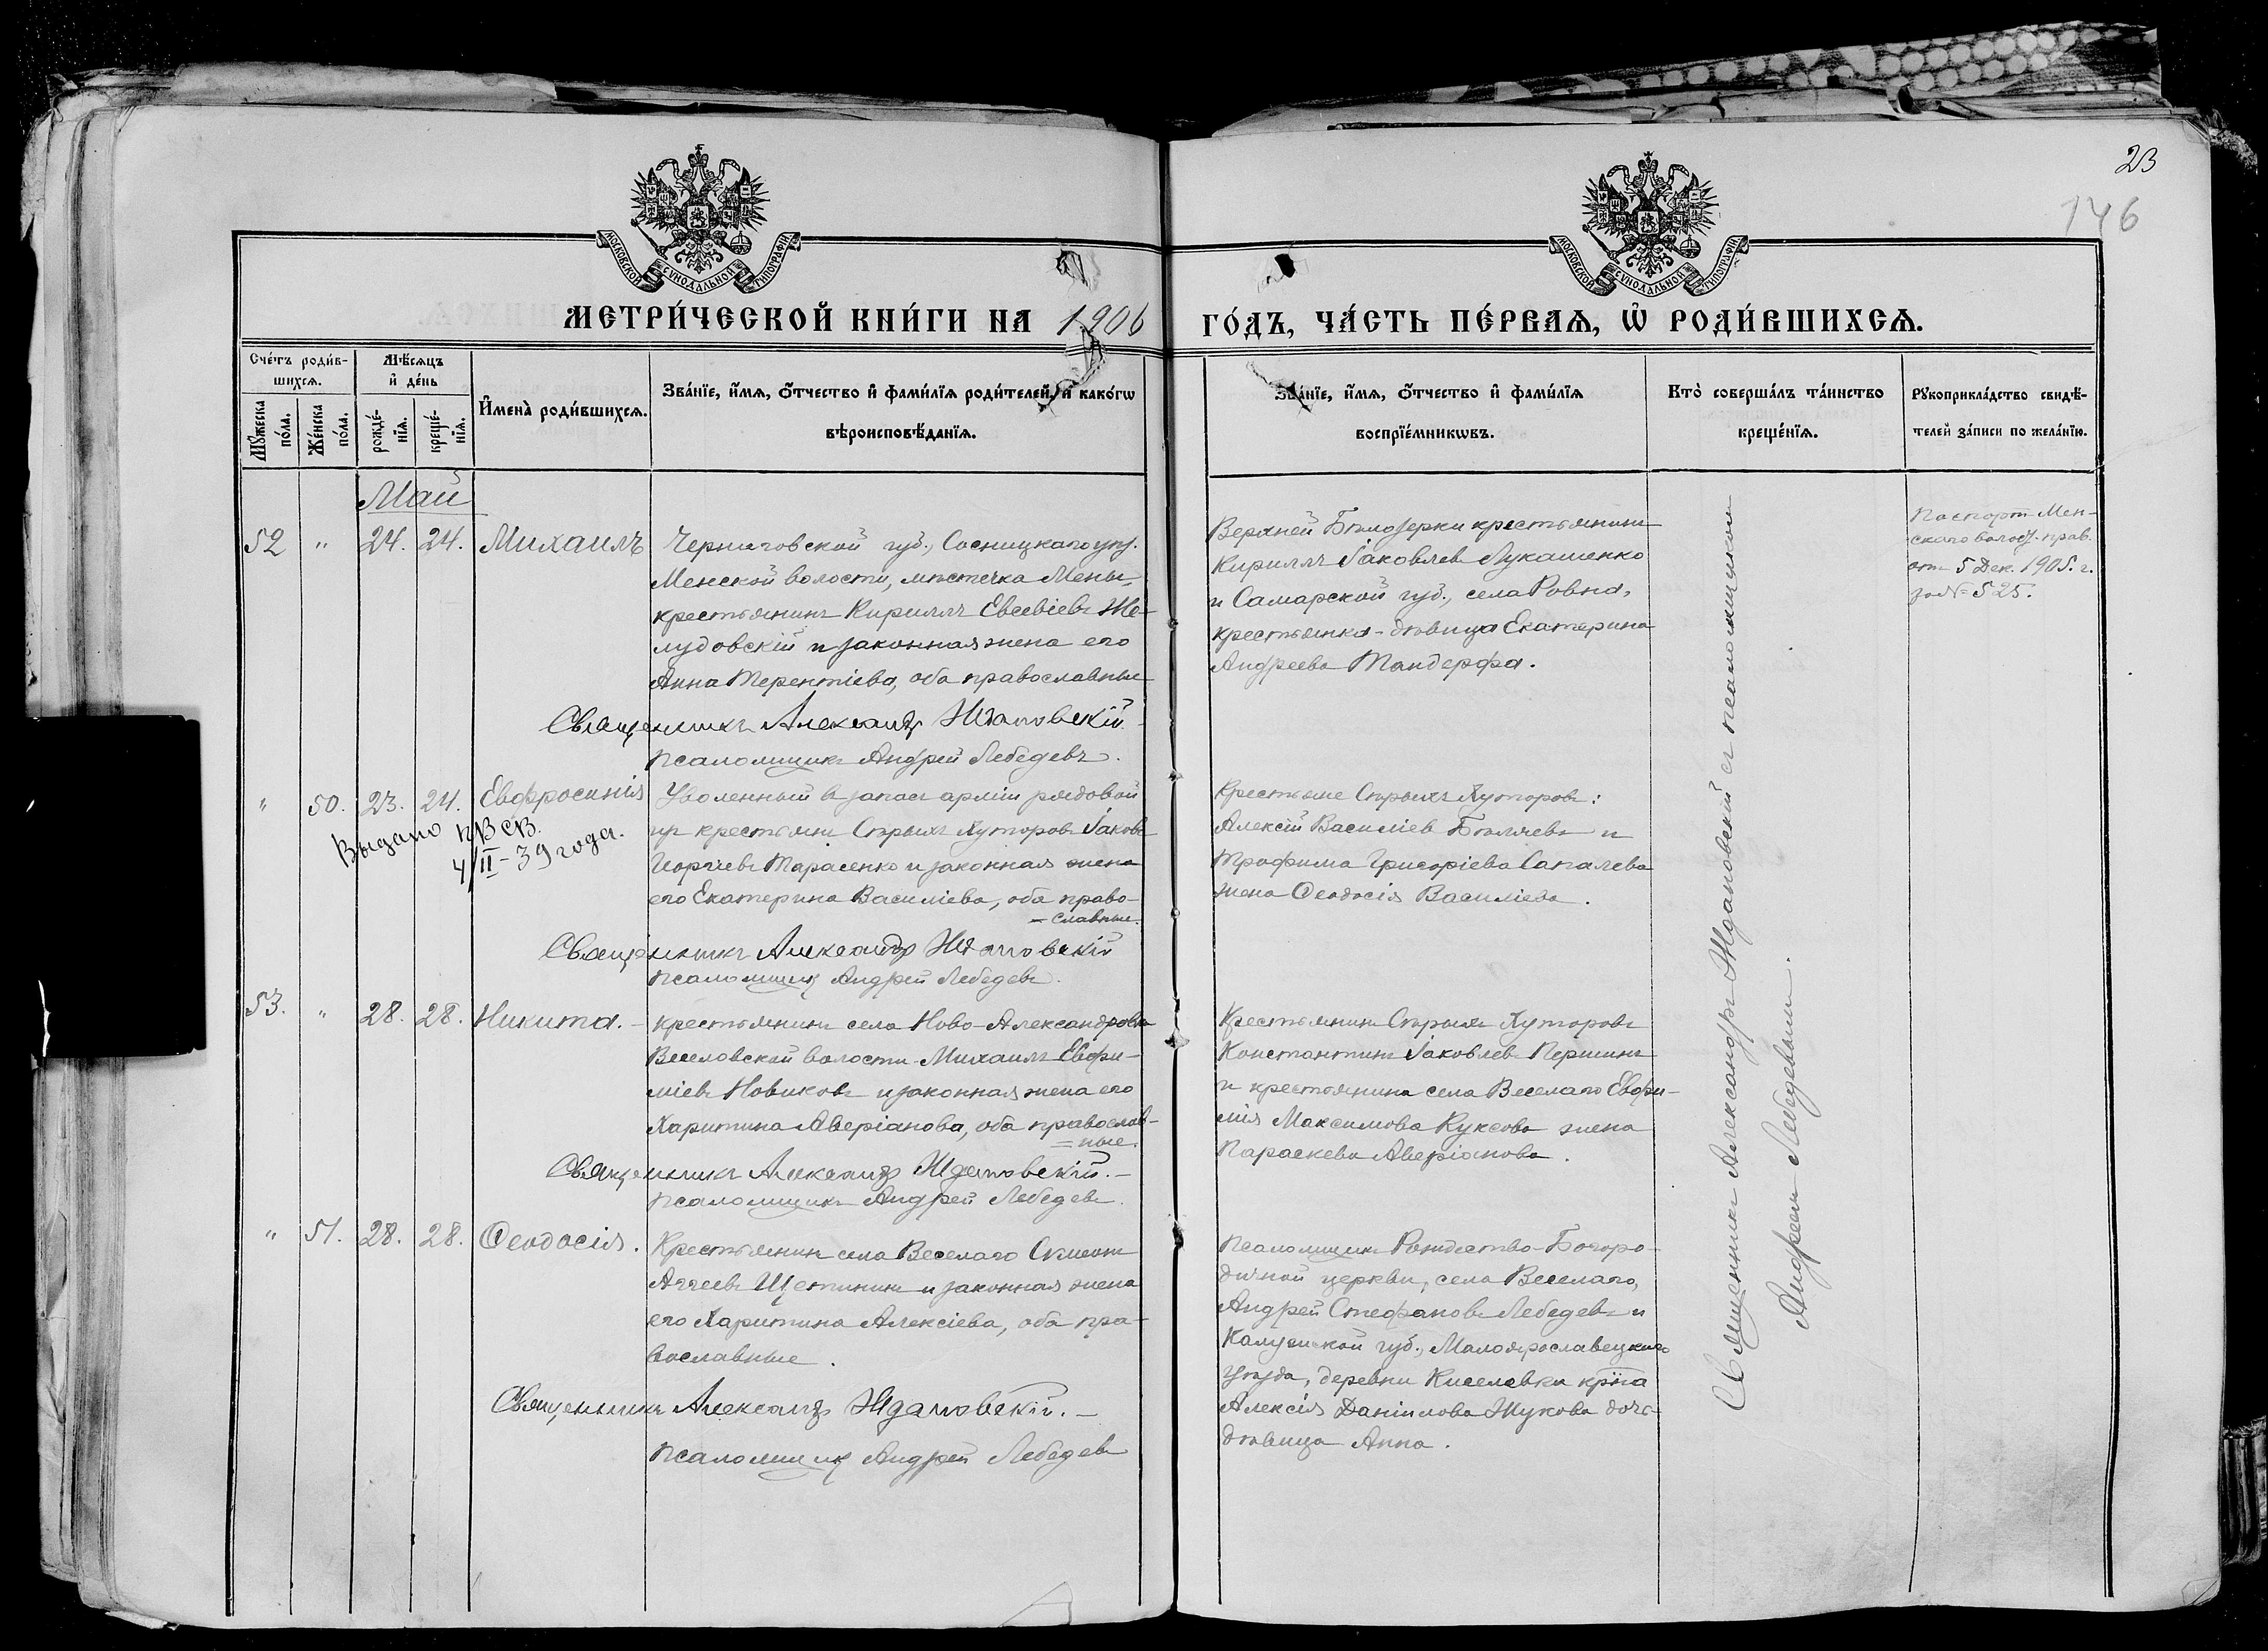 23
146
МОСКОВСКОЙ СѴНОДАЛЬНОЙ ТИПОГРАФІИ
МОСКОВСКОЙ СѴНОДАЛЬНОЙ ТИПОГРАФІИ
МЕТРИ́ЧЕСКОЙ КНИ́ГИ НА 1906
ГО́ДЪ, ЧА́СТЬ ПЕ́РВАѦ, Ѡ҆ РОДИ́ВШИХСѦ.
Сче́тъ роди́в-
шихсѧ.
Мꙋ́жеска по́ла.
Же́нска по́ла.
Мѣ́сѧцъ
и҆ де́нь
рожде́-
нїѧ.
креще́-
нїѧ.
И҆мена̀ роди́вшихсѧ.
Зва́нїе, и҆́мѧ, ѻ҆́тчество и҆ фами́лїѧ роди́телей, и҆ како́гѡ
вѣроисповѣ́данїѧ.
Зва́нїе, и҆́мѧ, ѻ҆́тчество и҆ фами́лїѧ
воспрїе́мникѡвъ.
Кто̀ соверша́лъ та́инство
креще́нїѧ.
Рꙋкоприкла́дство свидѣ́-
телей за́писи по жела́нїю.
Май
52 " 24. 24. Михаилъ
Черниговской губ., Сосницкаго уѣз.
Менской волости, мѣстечка Мены,
крестьянинъ Кириллъ Евсевіевъ Же-
лудовскій и законная жена его
Анна Терентіева, оба православные
Священникъ Александръ Ждановскій.
Псаломщикъ Андрей Лебедевъ.
Верхней Бѣлозерки крестьянинъ
Кириллъ Іаковлев Лукашенко
и Самарской губ., села Ровна,
крестьянка-дѣвица Екатерина
Андреева Тандерфа.
Паспортъ Мен-
скаго волос. прав.
отъ 5 Дек. 1905. г.
за № 525.
" 50. 23. 24. Евфросинія
Выдано ПВ СВ.
4/II-39 года.
Уволенный въ запасъ арміи рядовой
изъ крестьянъ Сѣрыхъ Хуторовъ Іаковъ
Георгіевъ Тарасенко и законная жена
его Екатерина Василіева, оба право-
славные.
Священникъ Александръ Ждановскій
Псаломщикъ Андрей Лебедевъ.
Крестьяне Сѣрыхъ Хуторовъ:
Алексій Василіев Бѣляевъ и
Трофима Григоріева Сапалева
жена Ѳеодосія Василіева.
53. " 28. 28. Никита.
Крестьянинъ села Ново-Александровки
Веселовской волости Михаилъ Евфи-
міевъ Новиковъ и законная жена его
Харитина Аверіанова, оба православ-
ные.
Священникъ Александръ Ждановскій.
Псаломщикъ Андрей Лебедевъ.
Крестьянинъ Сѣрыхъ Хуторовъ
Константинъ Іаковлев Першинъ
и крестьянина села Веселаго Евфи-
мія Максимова Куксова жена
Параскева Аверіанова.
" 51. 28. 28. Ѳеодосія.
Крестьянинъ села Веселаго
Аггеевъ Щетининъ и законная жена
его Харитина Алексіева, оба пра-
вославные.
Священникъ Александръ Ждановскій.
Псаломщикъ Андрей Лебедевъ
Псаломщикъ Рождество-Богоро-
дичной церкви, села Веселаго,
Андрей Стефановъ Лебедевъ и
Калужской губ., Малоярославецкаго
уѣзда, деревни Киселевки кр-на
Алексія Даніилова Жукова дочь-
дѣвица Анна.
Священникъ Александръ Ждановскій съ псаломщикомъ
Андреемъ Лебедевымъ.